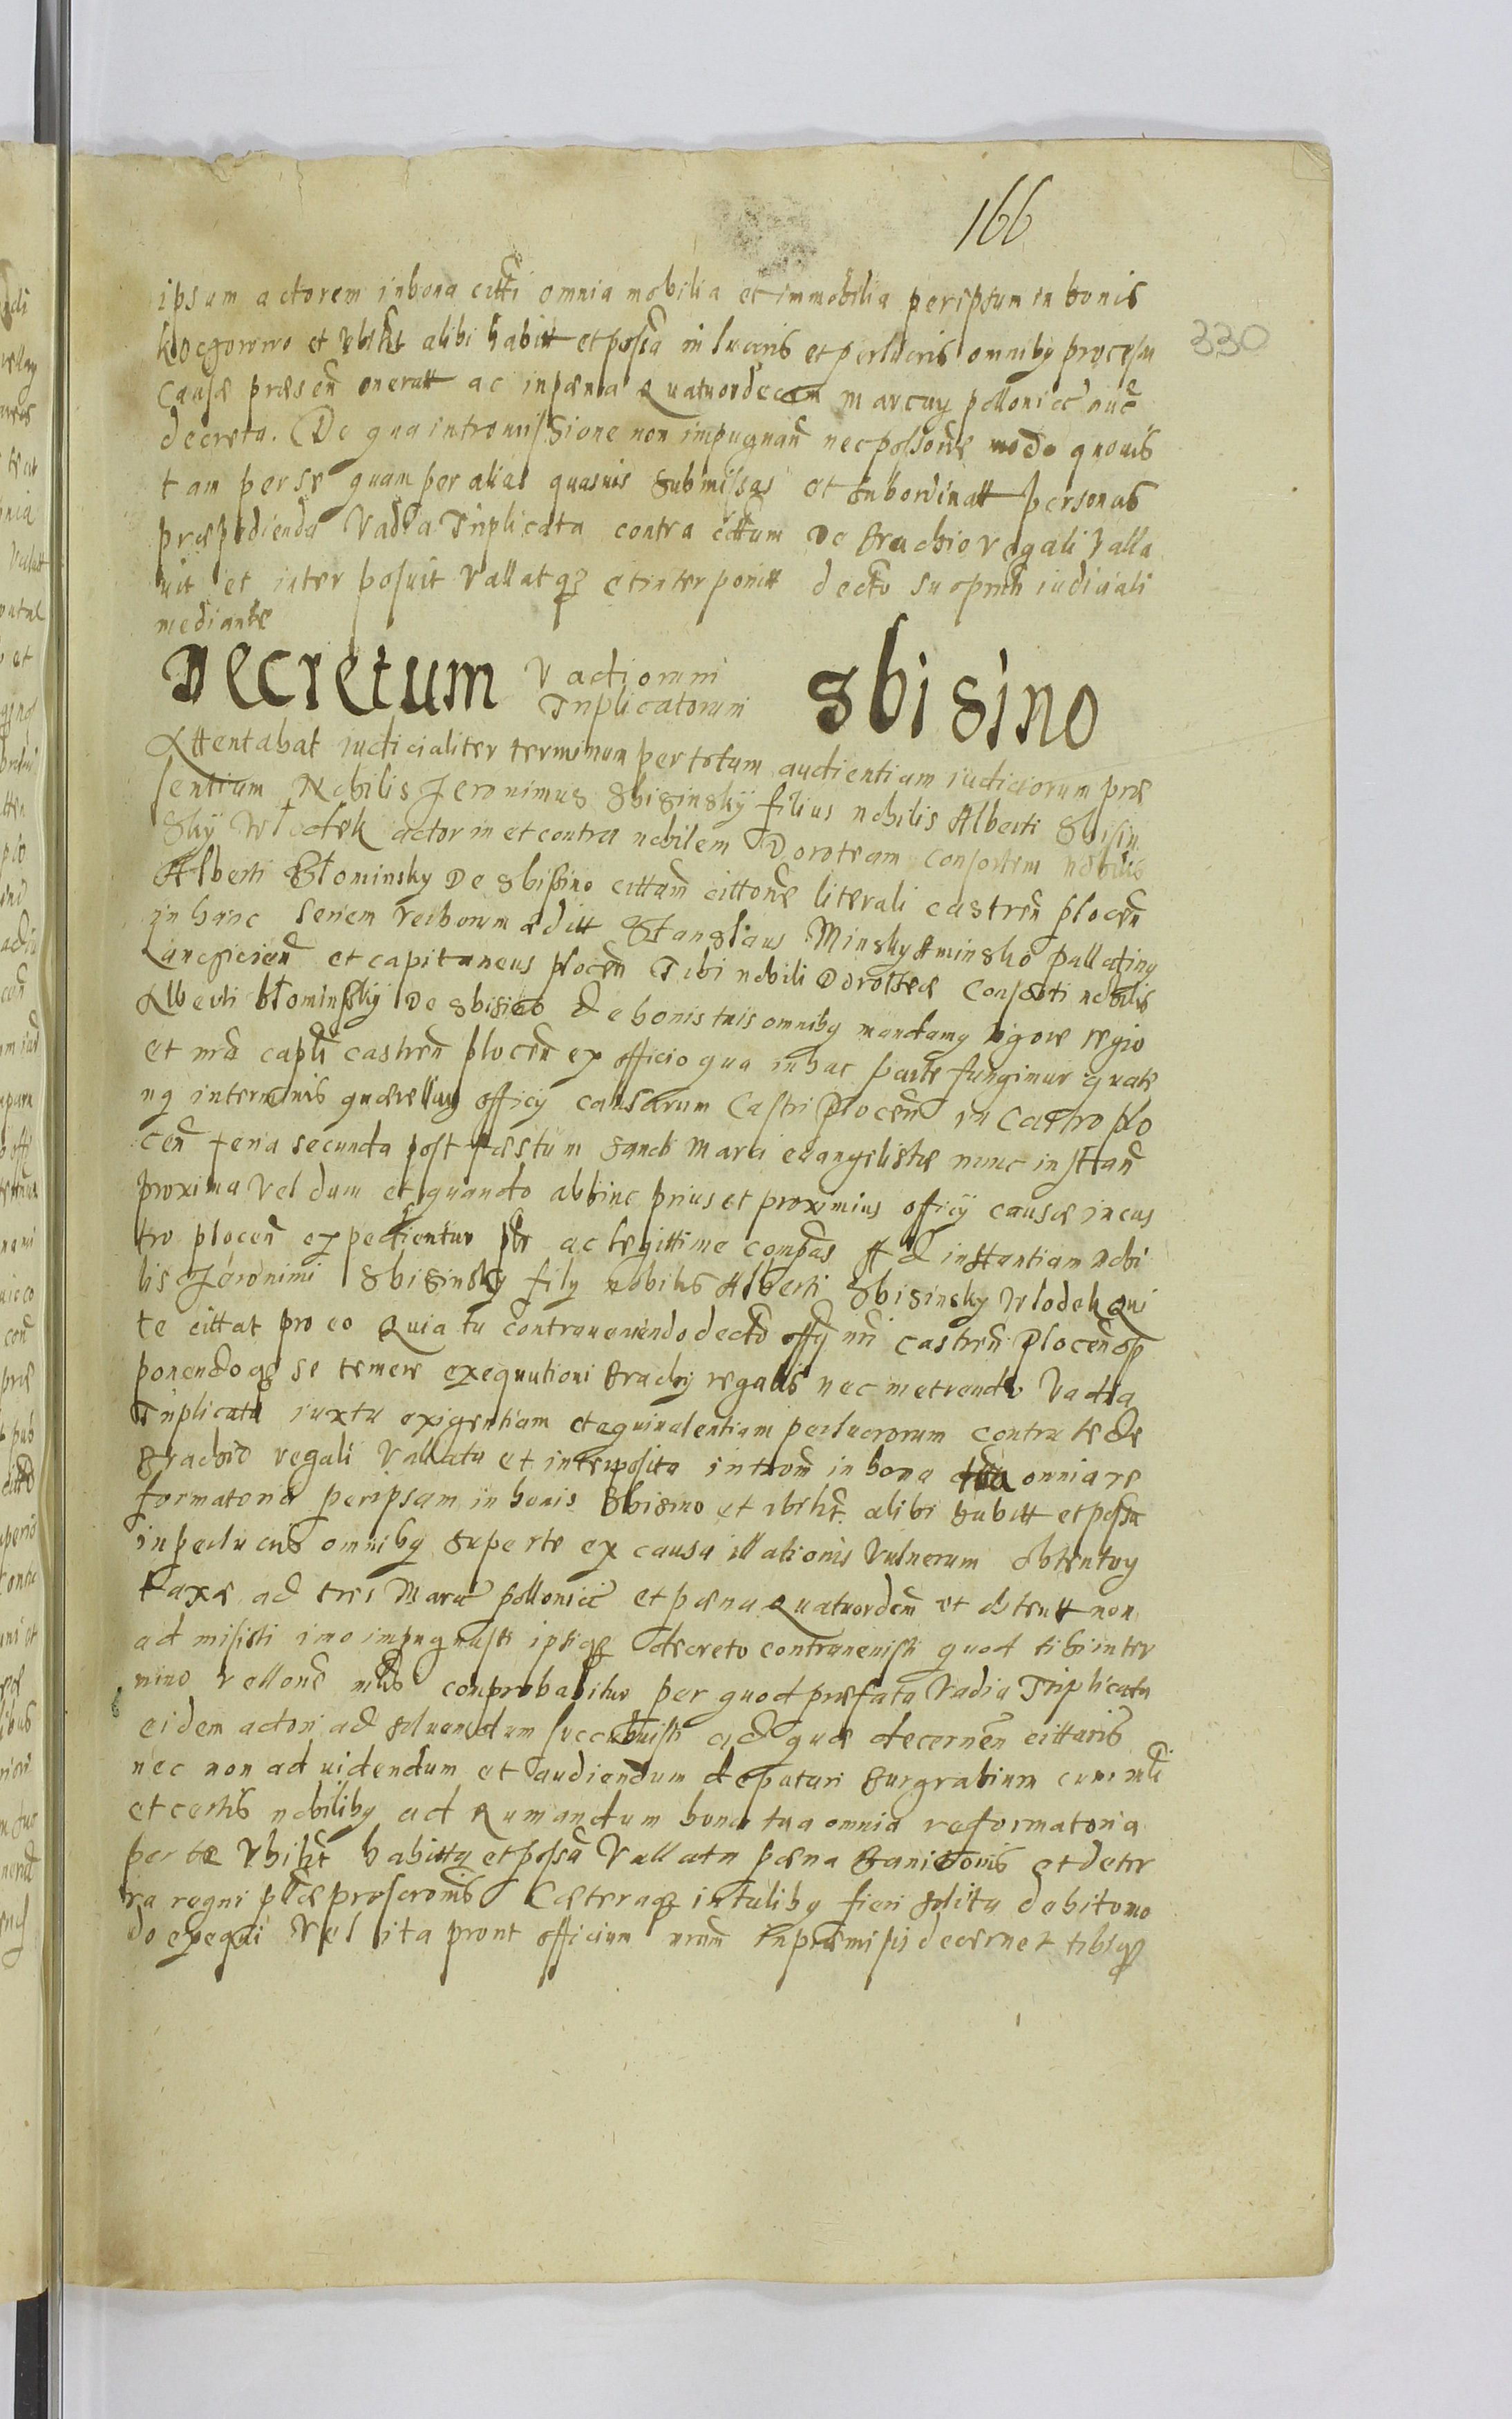 166
330
ipsum actorem in bona citti omnia mobilia et immobilia per ipsum in bonis
et alibi habitt et possa in lucris et perlucris omniby processu
causæ præsen oneratt ac in pæna Quatuordecem marcay pollonicc
decreta. De qua intromissione non impugnan nec modo quouis
tam per se quam per alias quasuis submissas et subordinatt personas
præpedienda Vadia Triplicata contra cittum De brachio regali Valla
uit et inter posuit Vallatq3 et inter ponitt decto suo pnti iudiciali
mediante
Decretum Vadiorum Triplicatorum Sbisino
Attentabat iudicialiter terminum per totum audientiam iudiciorum præ
sentium Nobilis Jeronimus Sbisinskÿ filius nobilis Alberti Sbisin
skÿ Wlodek actor in et contra nobilem Doroteam consortem nobilis
Alberti Błominsky De Sbissino cittam cittone literali castren plocen
in hanc seriem verborum æditt Stanslaus Minsky Aminsko pallatiny
Lancicien et capitaneus plocen Tibi nobili Dorotheæ consorti nobilis
Alberti błominskÿ De Sbisino De bonis tuis omniby mandamy rigore regio
et nra capli castren plocen ex officio quo in hac parte fungimur quate
ny in terminis quærellay officÿ causarum Castri Plocen in Castro plo
cen feria secunda post fæstum sancti Marci euangelistæ nunc insttan
proxima vel dum et quando abhinc prius et proximius officÿ causæ in cas
tro plocen expedientur ac legittime compas Ad instantiam nobi
lis Jeronimi Sbisinsky filÿ nobilis Alberti Sbisinsky Wlodek Qui
te cittat pro eo Quia tu contraueniendo decto offÿ nri castren Plocen op
ponendoq3 se temere exequutioni brachÿ regalis nec metuendo Vadia
Triplicata iuxta exigentiam et equiualentiam perlucrorum contra te de
brachio regali Vallata et interposita introm in bona tua omnia re
formatoria per ipsam in bonis Sbisino et alibi habitt et possa
in perlucris omniby super te ex causa illationis Vulnerum obtentoy
taxæ ad tres Marcc pollonicc et pæna Quatuordecm et obtentt non
admisisti imo impugnasti ipsiq3 decreto contrauenisti quod tibi in ter
mino comprobabitur per quod præfata Vadia Triplicata
eidem actori ad soluendum succubuisti ad quæ decernen cittaris
nec non ad uidendum et audiendum deputari burgrabium cum mli
et certis nobiliby ad Rumandum bona tua omnia reformatoria
per te habitty et possa Vallata pæna banitionis et de ter
ra regni proscronis Cæteraq3 in taliby fieri solita debito mo
do exequi Vel ita prout officium nrum in præmissis decernet tibiq3